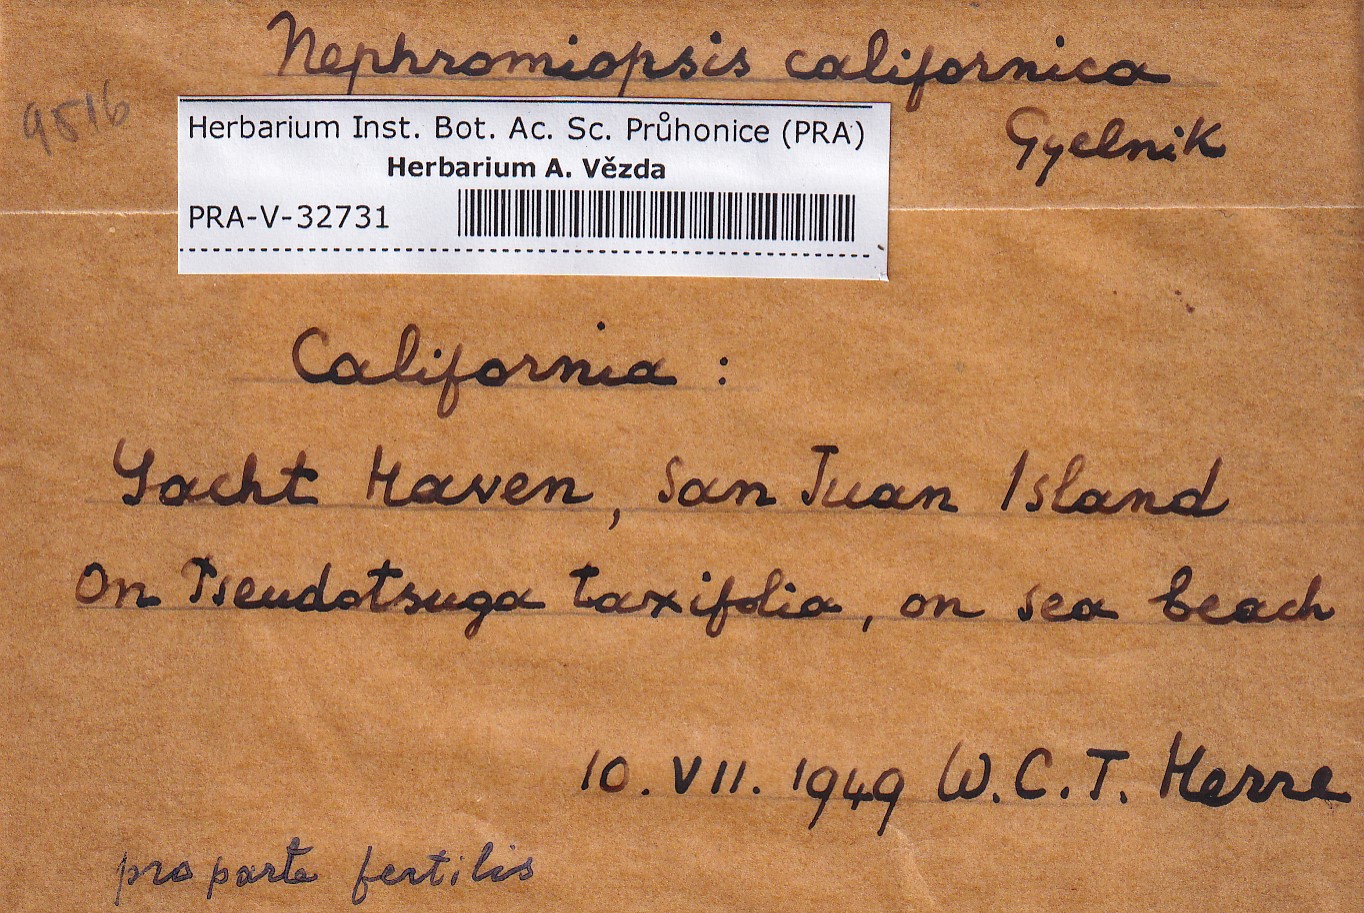 Nephromiopsis californica
Gyelnik
9516
Herbarium Inst. Bot. Ac. Sc. Průhonice (PRA)
Herbarium A. Vězda
PRA-V-32731
California :
Yacht Haven, San Juan Island
On Pseudotsuga taxifolia, on sea beach
10. VII. 1949 W. C. T. Herre
pro parte fertilis